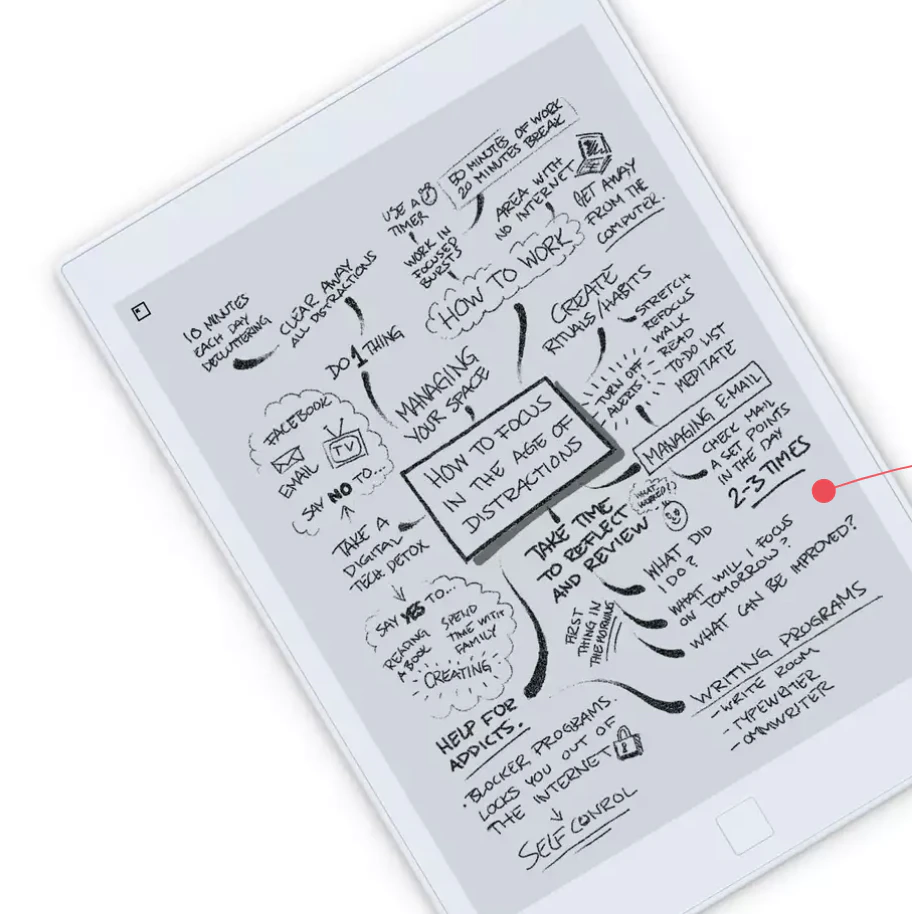 50 MINUTES OF WORK
20 MINUTES BREAK
USE A
TIMER
WORK IN
FOCUSED
BURSTS
AREA WITH
NO INTERNET
GET AWAY
FROM THE
COMPUTER.
HOW TO WORK
10 MINUTES
EACH DAY
DECLUTTERING
CLEAR AWAY
ALL DISTRACTIONS
DO 1 THING
MANAGING
YOUR SPACE
CREATE
RITUALS/HABITS
STRETCH
REFOCUS
WALK
READ
TO-DO LIST
MEDITATE
TURN OFF
ALERTS!
HOW TO FOCUS
IN THE AGE OF
DISTRACTIONS
MANAGING E-MAIL
CHECK MAIL
A SET POINTS
IN THE DAY
2-3 TIMES
FACEBOOK
TV
EMAIL
SAY NO TO...
TAKE A
DIGITAL
TECH DETOX
SAY YES TO...
READING
A BOOK
SPEND
TIME WITH
FAMILY
CREATING
TAKE TIME
TO REFLECT
AND REVIEW
WHAT
WORKED?
WHAT DID
I DO?
WHAT WILL I FOCUS
ON TOMORROW?
WHAT CAN BE IMPROVED?
FIRST
THING IN
THE MORNING
HELP FOR
ADDICTS.
WRITING PROGRAMS
- WRITE ROOM
- TYPEWRITER
- OMMWRITER
• BLOCKER PROGRAMS.
LOCKS YOU OUT OF
THE INTERNET
SELF CONROL